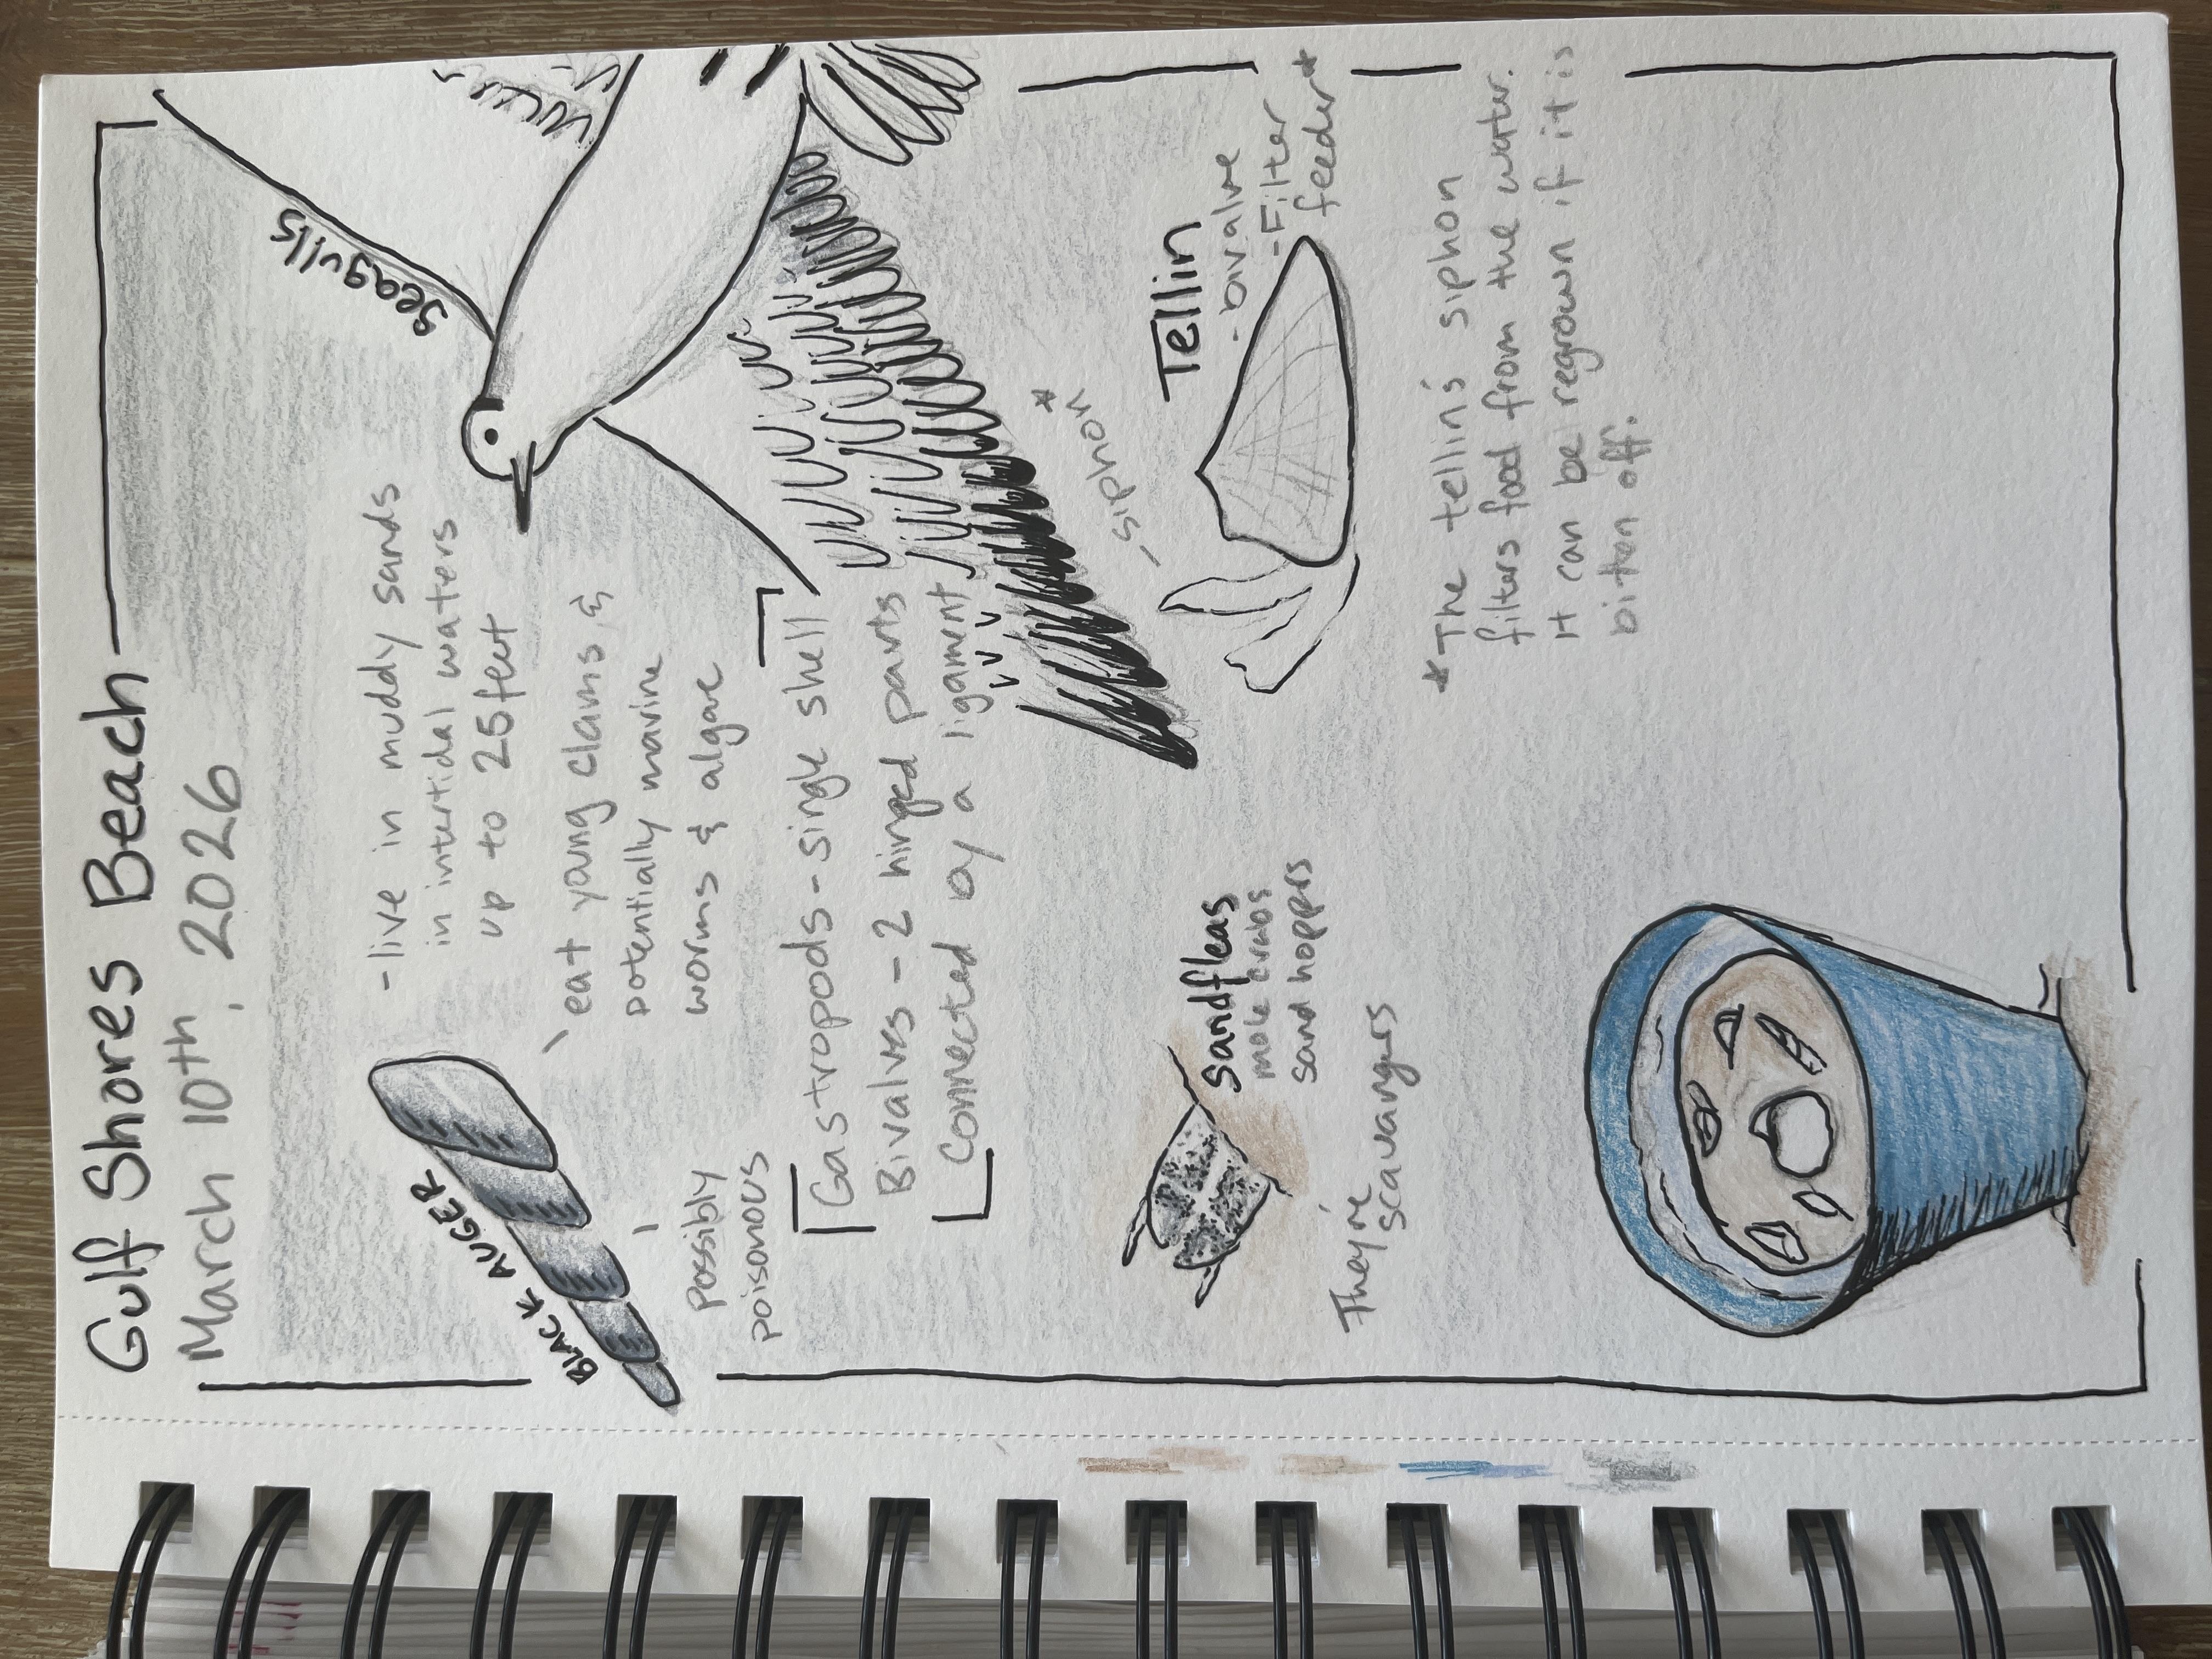 Gulf Shores Beach
March 10th, 2026
Seagulls
BLACK AUGER
- live in muddy sands
in intertidal waters
up to 25 feet
eat young clams, &
potentially marine
worms & algae
Possibly
poisonous
Gastropods - single shell
Bivalves - 2 hinged parts
Connected by a ligament
siphon*
Tellin
- bivalve
- Filter
feeder*
*The tellin's siphon
filters food from the water.
It can be regrown if it is
bitten off.
Sandfleas
mole crabs
sand hoppers
They're
scavangers